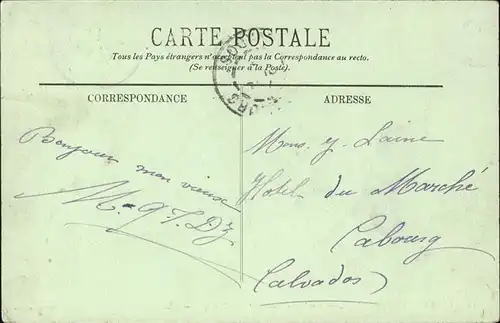 CARTE POSTALE
Tous les Pays étrangers n'acceptent pas la Correspondance au recto.
(Se renseigner à la Poste).
CORRESPONDANCE
ADRESSE
Bonjour mon vieux
Mons. J. Laine
Hotel du Marché
Cabourg
(Calvados)